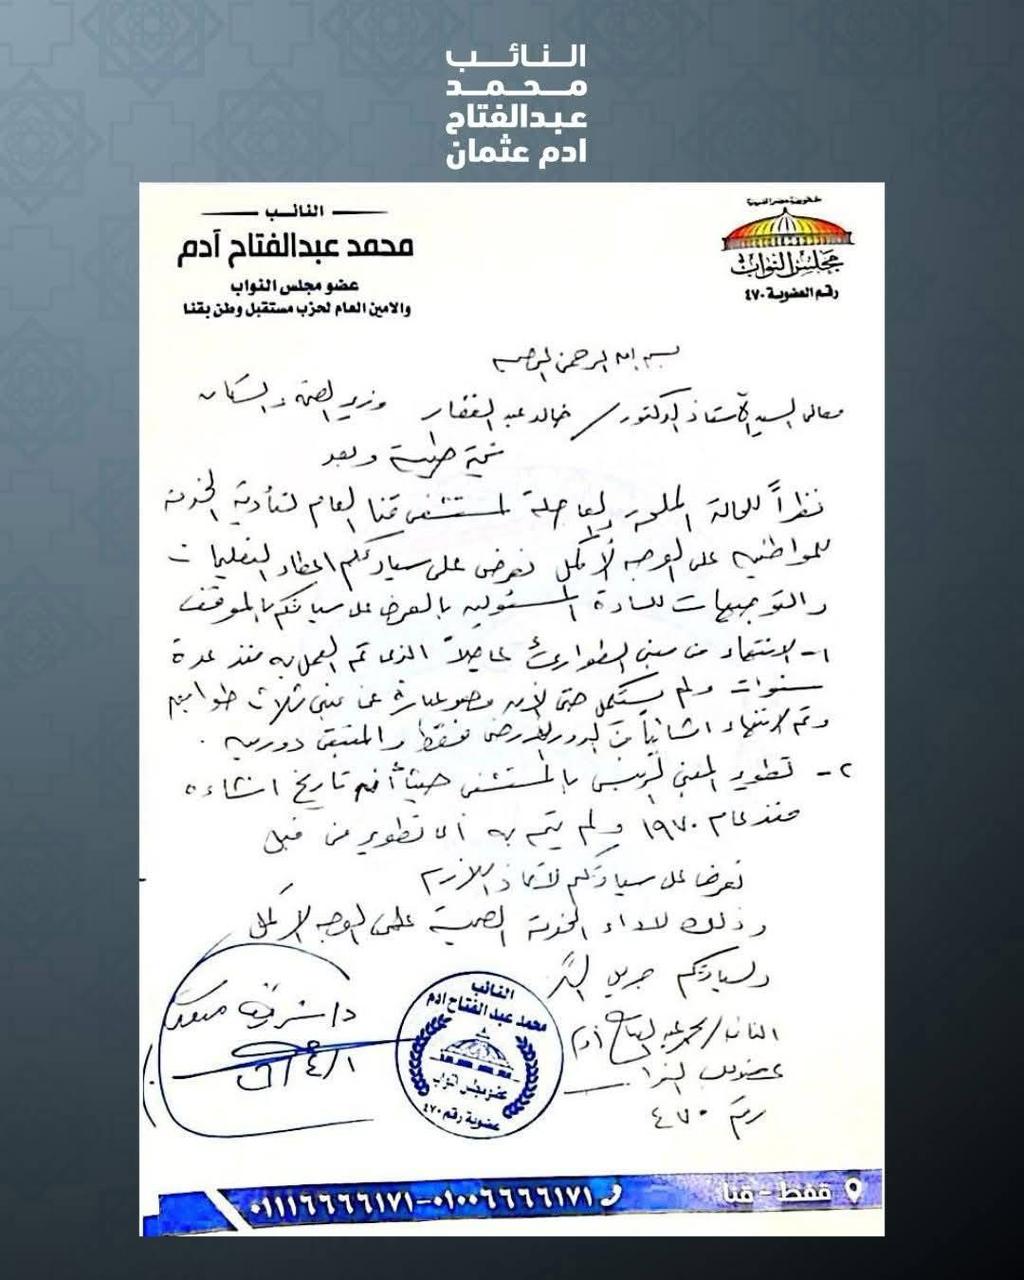 النائب
محمد
عبدالفتاح
ادم عثمان
جمهورية مصر العربية
مجلس النواب
رقم العضوية ٤٧٠
النائب
محمد عبدالفتاح آدم
عضو مجلس النواب
والامين العام لحزب مستقبل وطن بقنا
بسم الله الرحمن الرحيم
معالى السيد الأستاذ الدكتور / خالد عبد الغفار وزير الصحة والسكان
تحية طيبة وبعد
نظراً للحالة الملحة والعاجلة لمستشفى قنا العام لتأدية الخدمة
للمواطنين على الوجه الأكمل نعرض على سيادتكم اعطاء التعليمات
والتوجيهات للسادة المسئولين بالعرض على سيادتكم بالموقف
١- الانتهاء من مبنى الطوارئ عاجلاً الذى تم العمل به منذ عدة
سنوات ولم يستكمل حتى الأن وهو عبارة عن مبنى ثلاث طوابق
وتم الانتهاء انشائياً من الدور الأرضى فقط والمتبقى دورين .
٢- تطوير المبنى الرئيسى بالمستشفى حيث أنه تاريخ انشاءه
منذ عام ١٩٧٠ ولم يتم به أى تطوير من قبل
نعرض على سيادتكم لاتخاذ اللازم
وذلك لاداء الخدمة الصحية على الوجه الأكمل
ولسيادتكم جزيل الشكر
النائب / محمد عبد الفتاح أدم
عضو مجلس النواب
رقم ٤٧٠
د/ شريف
النائب
محمد عبد الفتاح ادم
عضو مجلس النواب
عضوية رقم ٤٧٠
قفط - قنا
٠١١١٦٦٦٦١٧١-٠١٠٠٦٦٦٦١٧١